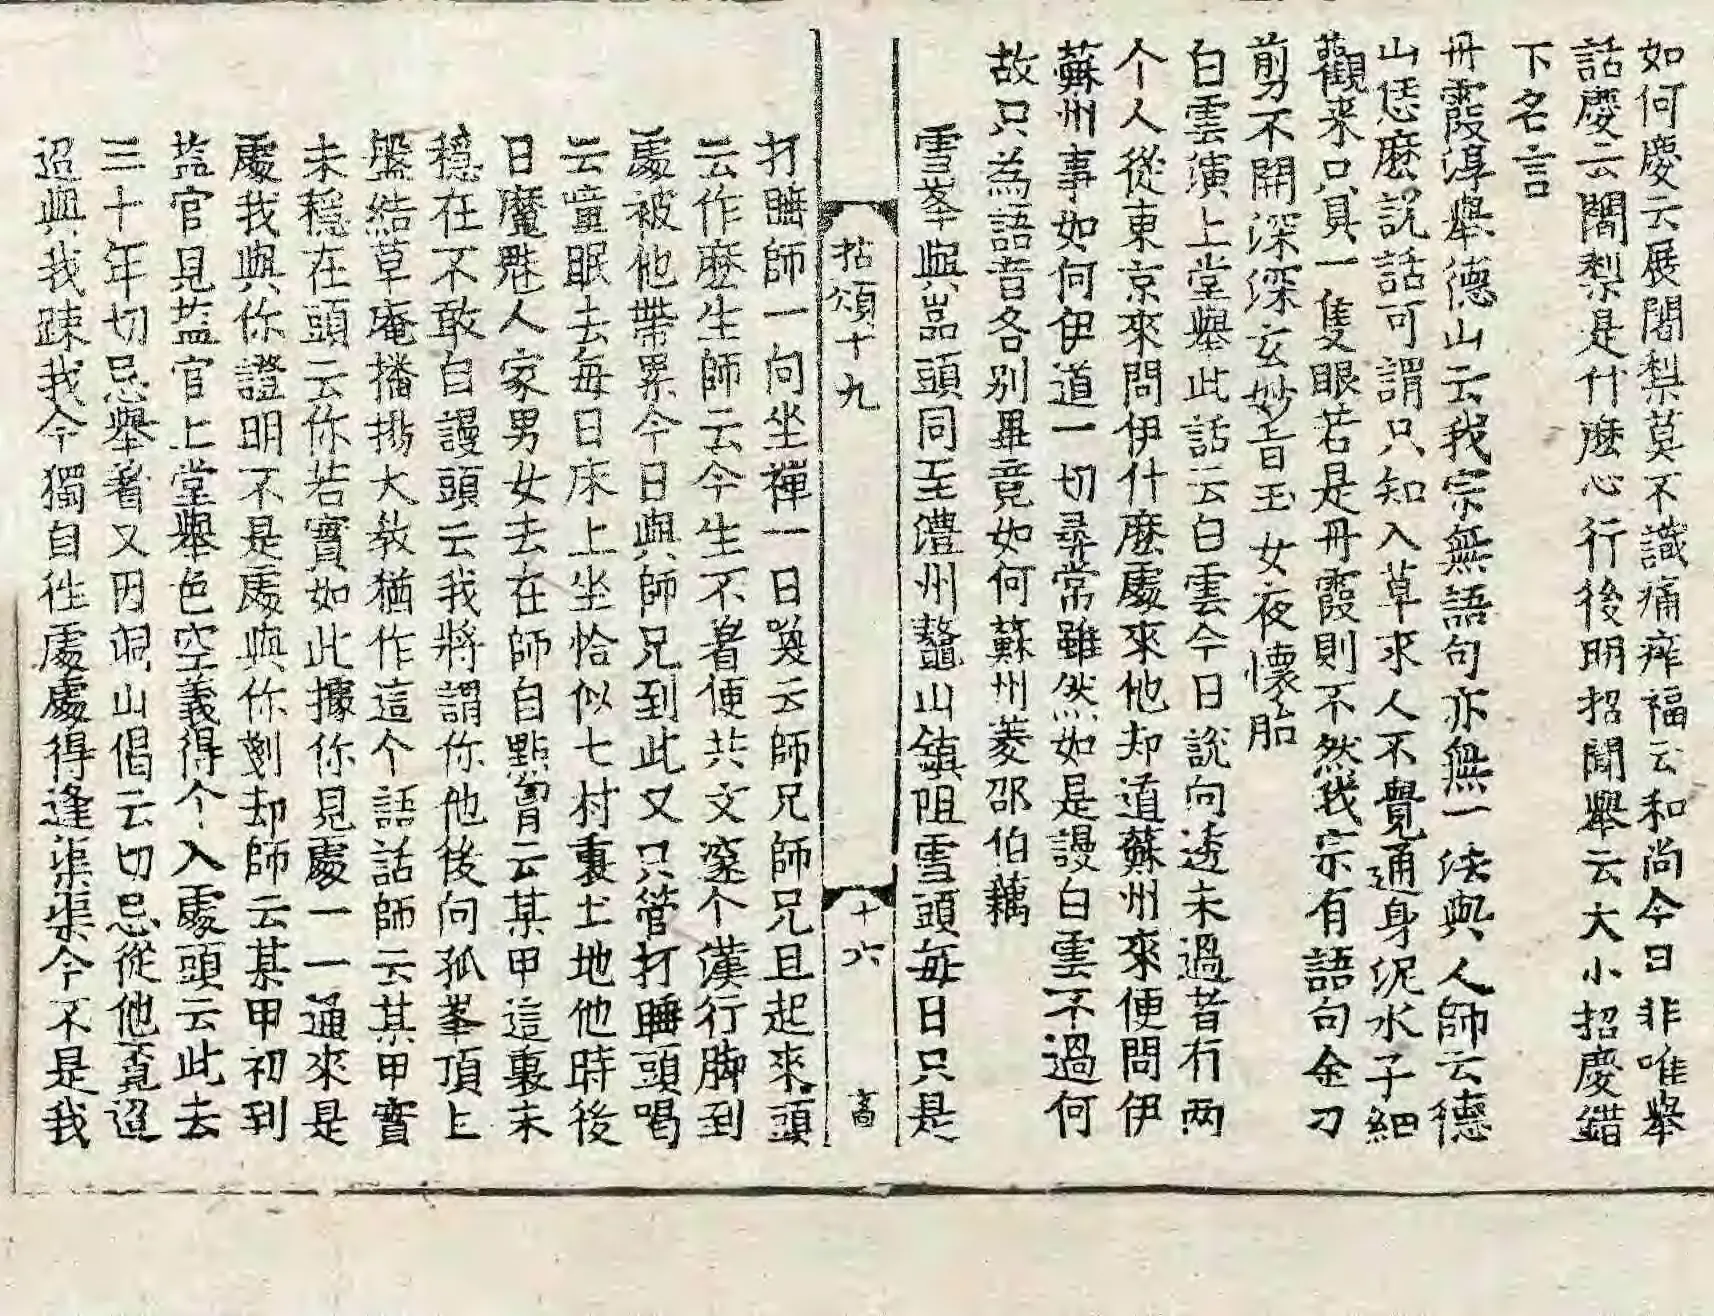 如何慶云展闍梨莫不識痛痒福云和尚今日非唯舉
話慶云闍梨是什麽心行後明招聞舉云大小招慶錯
下名言
丹霞淳舉德山云我宗無語句亦無一法與人師云德
山恁麽說話可謂只知入草求人不覺通身泥水子細
觀来只具一隻眼若是丹霞則不然我宗有語句金刀
剪不開深深玄妙旨玉女夜懷胎
白雲演上堂舉此話云白雲今日說向透未過者有兩
个人從東京來問伊什麽處來他却道蘇州來便問伊
蘇州事如何伊道一切尋常雖然如是謾白雲不過何
故只為語音各別畢竟如何蘇州菱邵伯藕
雪峯與嵓頭同至澧州鼇山鎮阻雪頭每日只是
拈頌十九
十六
高
打睡師一向坐禪一日喚云師兄師兄且起來頭
云作麽生師云今生不著便共文邃个漢行脚到
處被他帶累今日與師兄到此又只管打睡頭喝
云噇眠去每日床上坐恰似七村裏土地他時後
日魔魅人家男女去在師自點胷云某甲這裏未
穩在不敢自謾頭云我將謂你他後向孤峯頂上
盤結草庵播揚大教猶作這个語話師云某甲實
未穩在頭云你若實如此據你見處一一通來是
處我與你證明不是處與你剗却師云某甲初到
盐官見盐官上堂舉色空義得个入處頭云此去
三十年切忌舉着又因洞山偈云切忌從他覔迢
迢與我踈我今獨自徃處處得逢渠渠今不是我